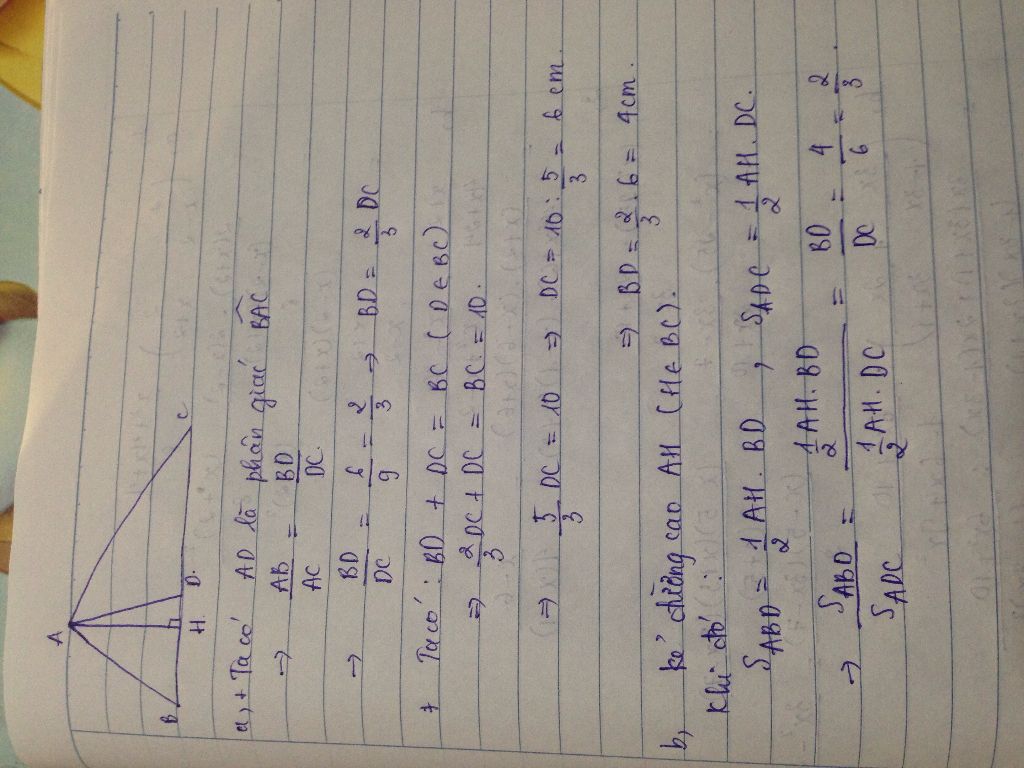 A
B H D. C
a, + Ta có AD là phân giác BAC
→ AB/AC = BD/DC
→ BD/DC = 6/9 = 2/3 → BD = 2/3 DC
+ Ta có: BD + DC = BC (D ∈ BC)
⇒ 2/3 DC + DC = BC = 10.
⇒ 5/3 DC = 10 ⇒ DC = 10 : 5/3 = 6 cm.
⇒ BD = 2/3 . 6 = 4cm.
b, kẻ đường cao AH (H ∈ BC).
Khi đó:
S ABD = 1/2 AH. BD , S ADC = 1/2 AH. DC.
→ S ABD / S ADC = 1/2 AH. BD / 1/2 AH. DC = BD/DC = 4/6 = 2/3